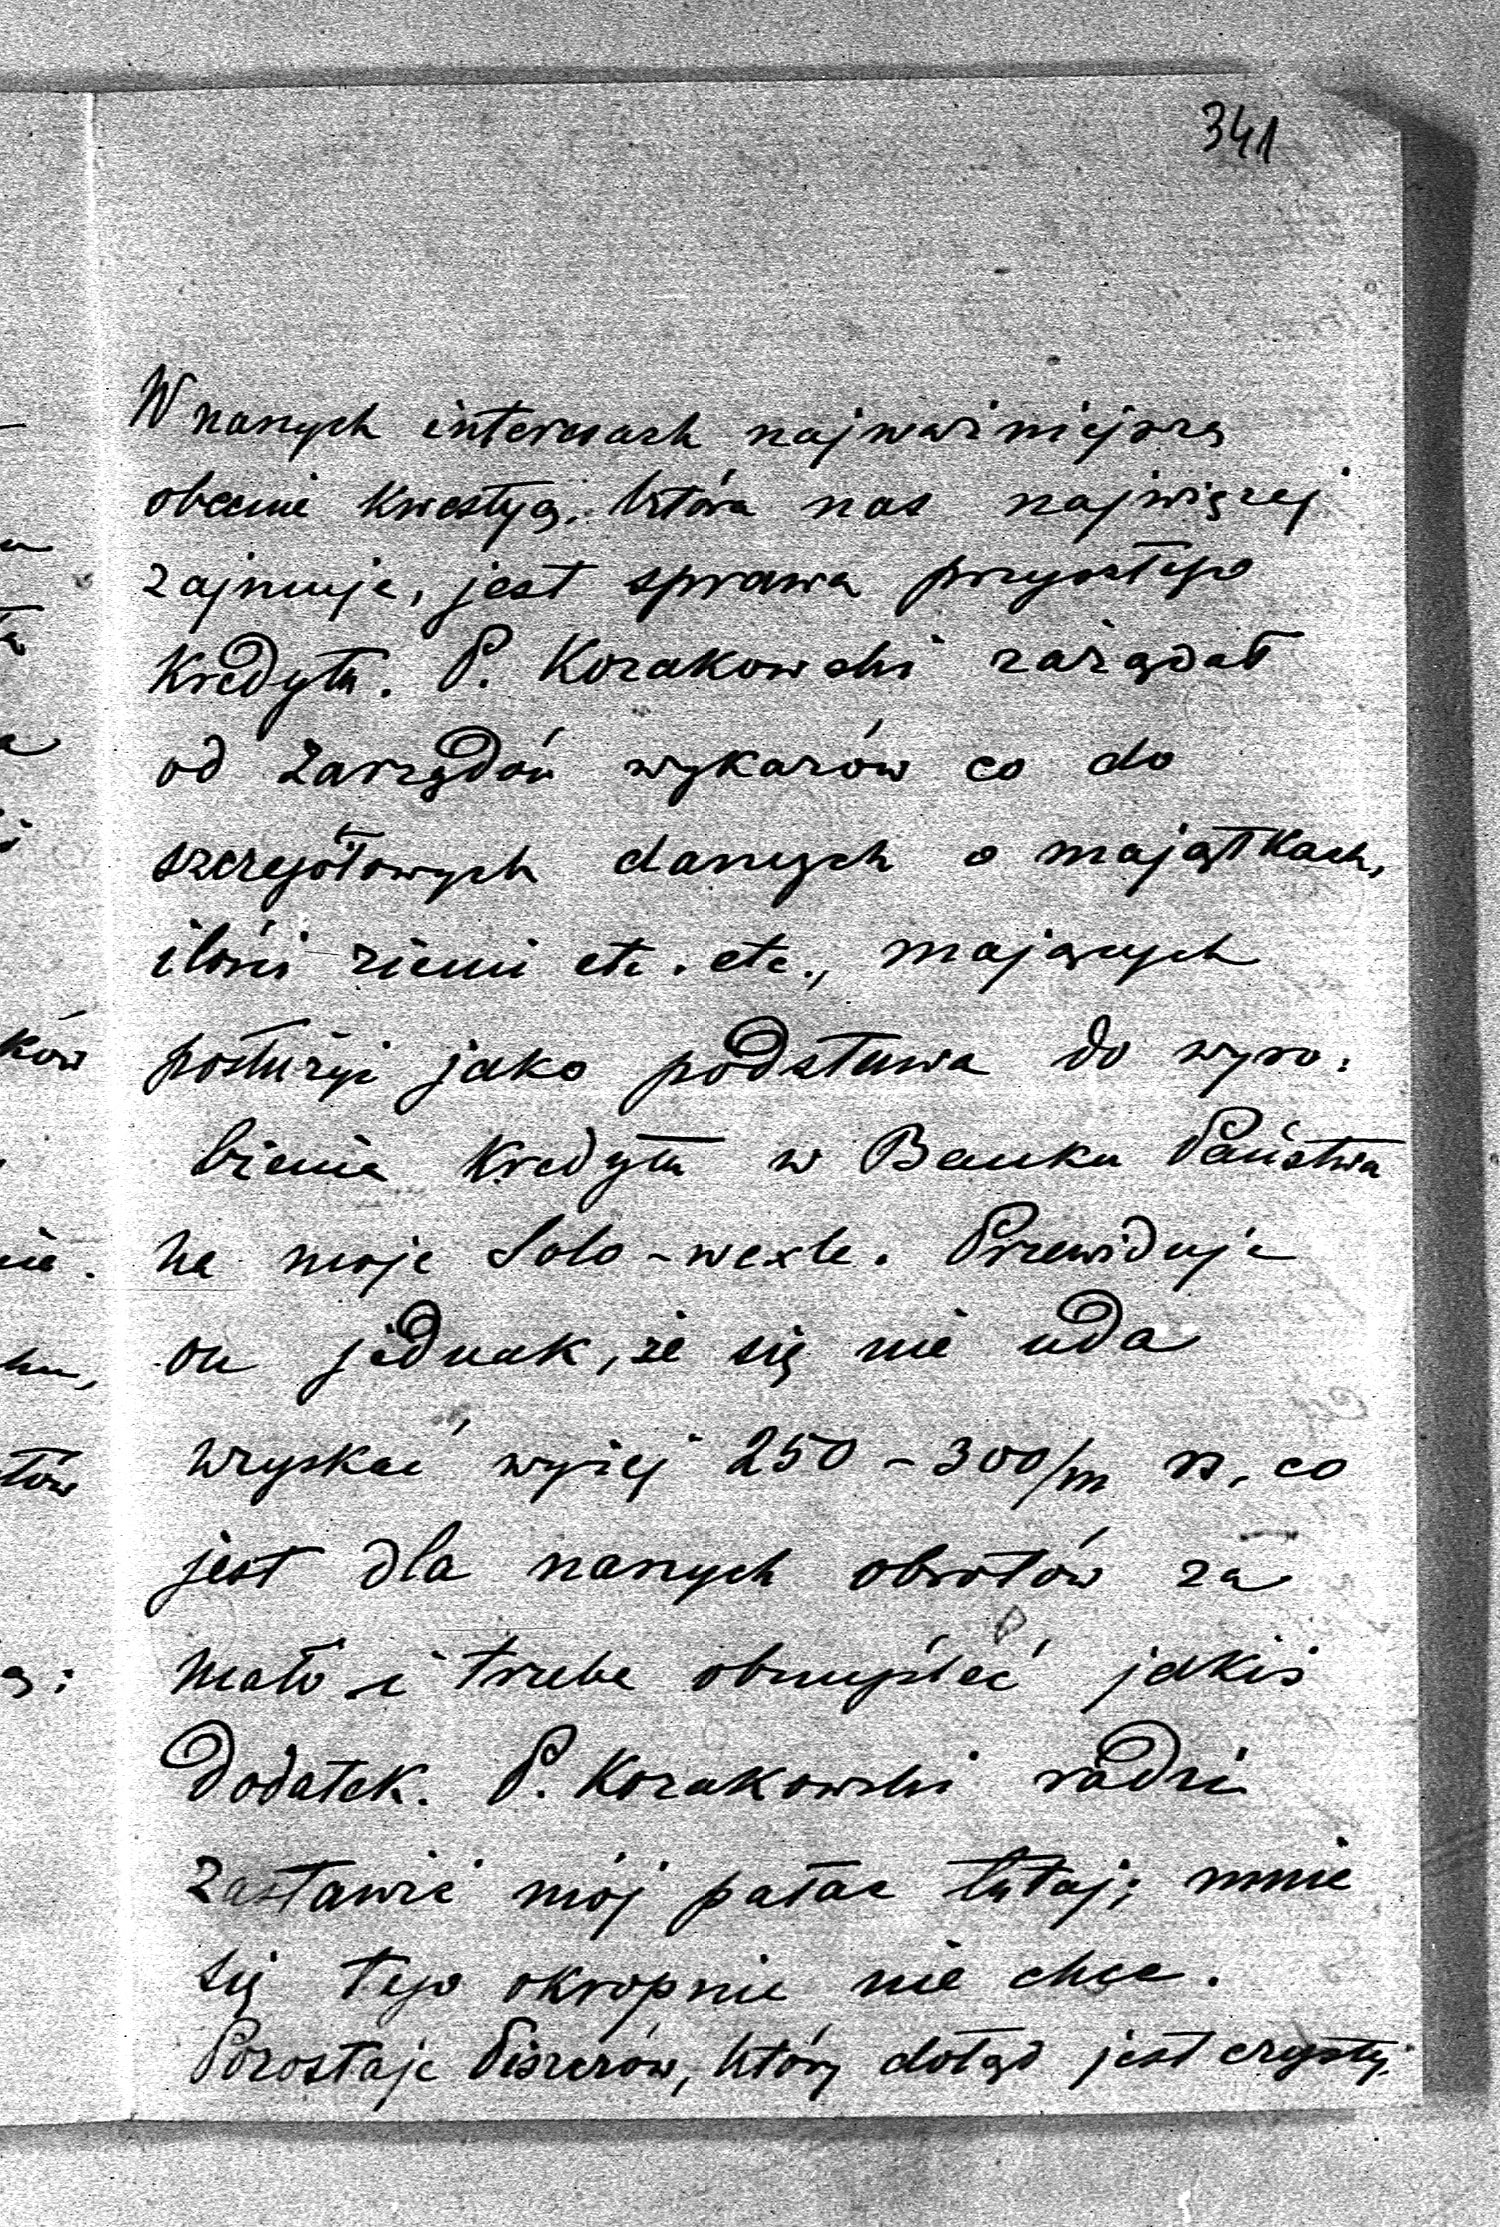 341
W naszych interesach najważniejszą
obecnie kwestyą, która nas najwięcej
zajmuje, jest sprawa przyszłego
kredytu. P. Kozakowski zażądał
od Zarządów wykazów co do
szczegółowych danych o majątkach,
ilości ziemi etc. etc., mających
posłużyć jako podstawa do wyro:
bienia kredytu w Banku Państwa
na moje Solo-wexle. Przewiduje
on jednak, że się nie uda
wzyskać wyżej 250 - 300/m rs, co
jest dla naszych obrotów za
mało i trzeba obmyśleć jakiś
dodatek. P. Kozakowski radzi
zastawić mój pałac tutaj; mnie
się tego okropnie nie chce.
Pozostaje Piszczów, który dotąd jest czysty.